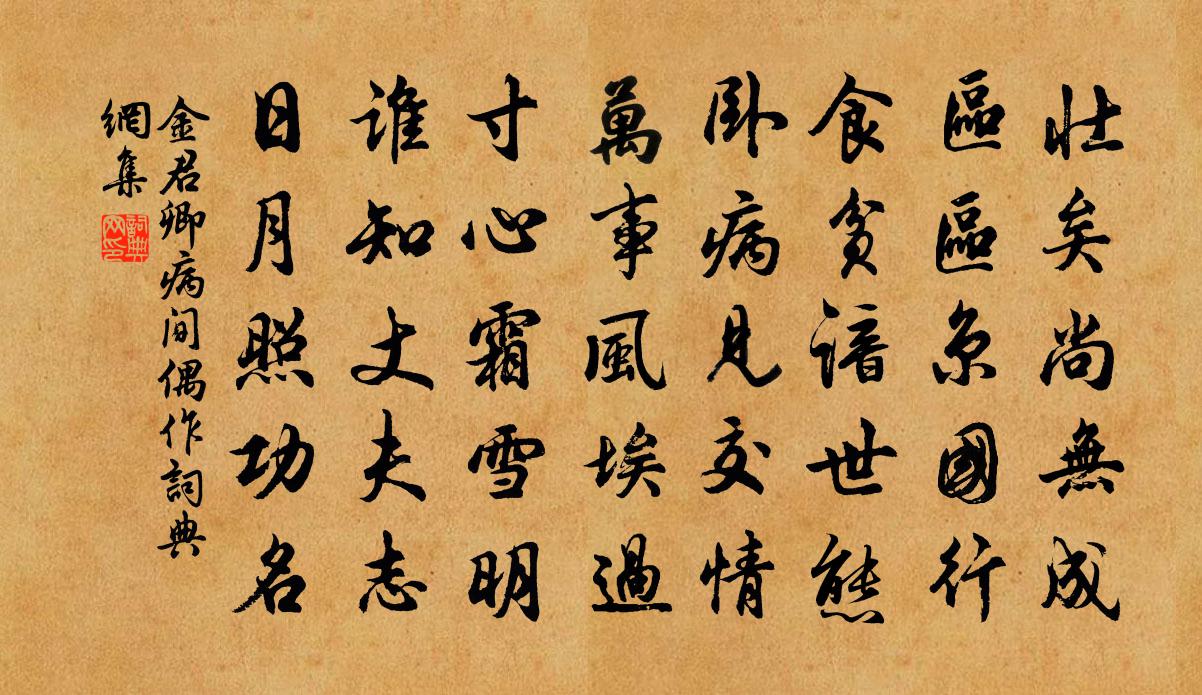 壯矣尚無成
區區京國行
食貧諳世態
卧病見交情
萬事風埃過
寸心霜雪明
誰知丈夫志
日月照功名
金君卿病间偶作詞典
網集
詞典网印